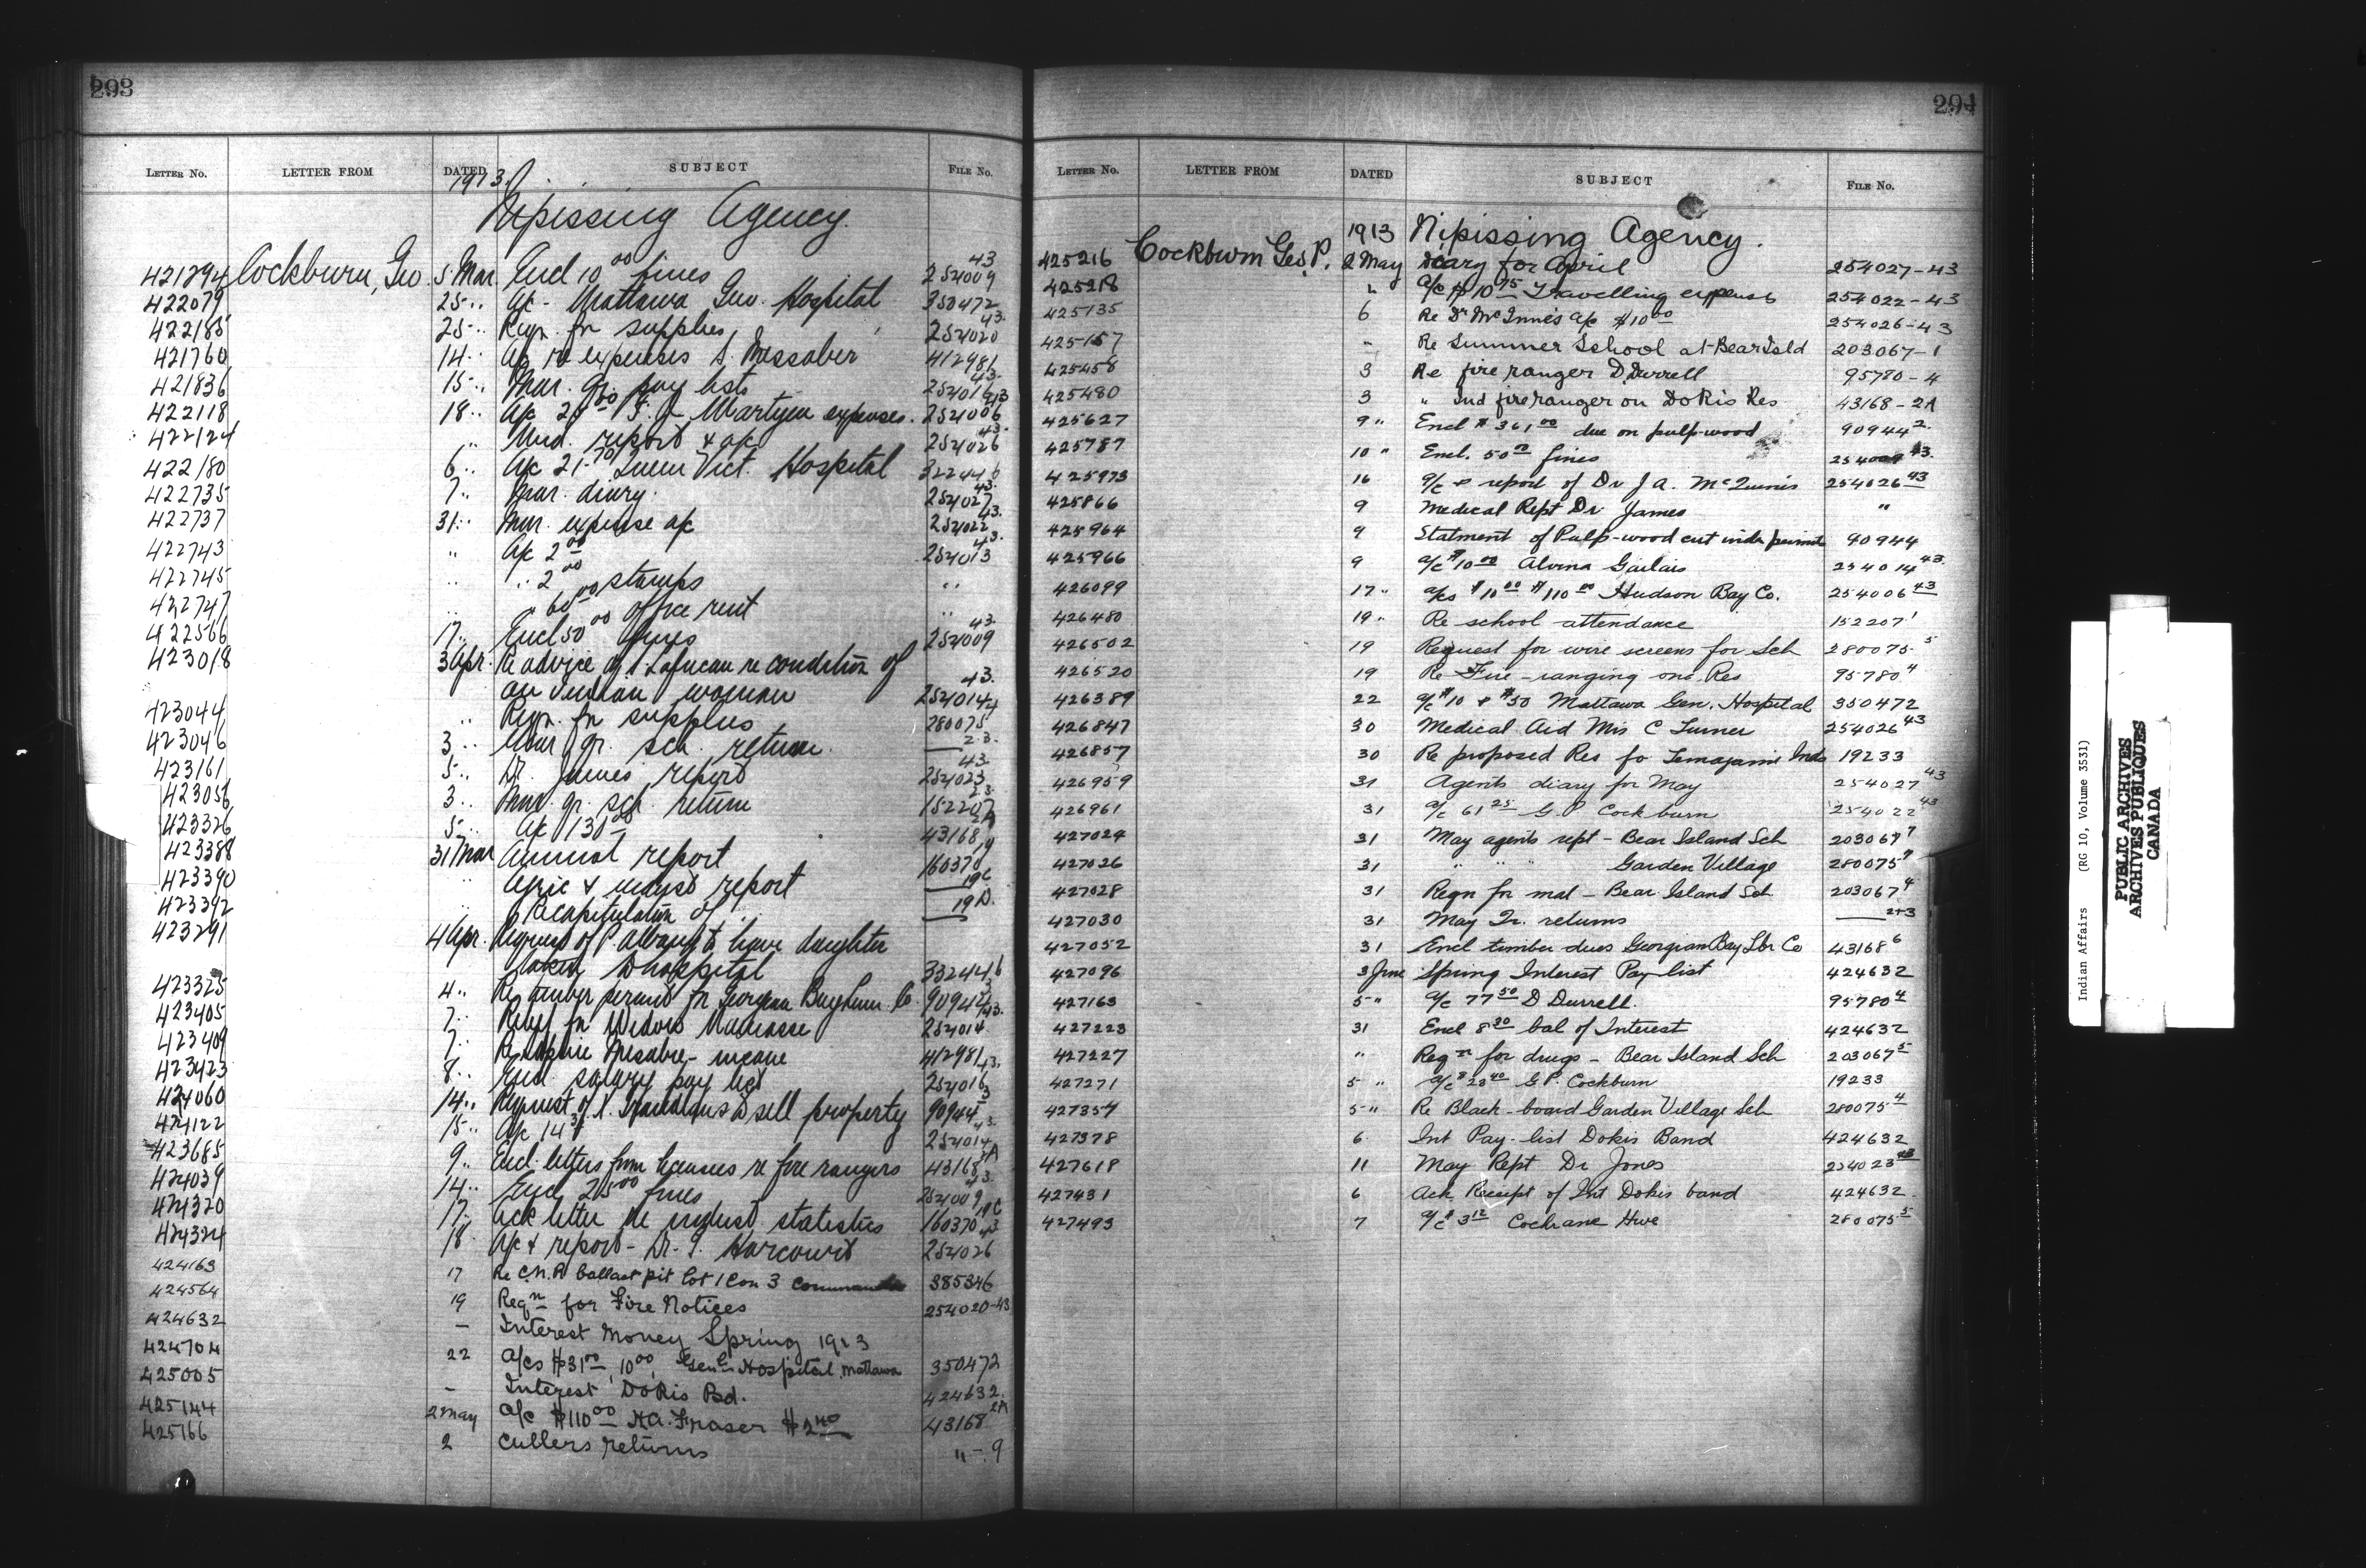 293
LETTER No. LETTER FROM DATED SUBJECT FILE No.
1913. Nipissing Agency.
421294 Cockburn, Geo 5 Mar. Encl 10 00 fines 254009 43
422079 25 " A/c - Mattawa Gen. Hospital 350472
422185 25 " Reqn. for supplies 254020 43.
421760 14 " A/c re expenses S. Messabie 412981
421836 15 " Mar. qr. pay lists 254016 43.
422118 18 " A/c F. J. Martyn expenses. 254006 43
422124 " Med. report & a/c 254026 43.
422180 6 " A/c 21.70 Queen Vict. Hospital 322444 6
422735 7 " Mar. diary. 254027 43.
422737 31 " Mar. expense a/c 254022 43.
422743 " A/c 2 00 254013 43.
422745 " " 2 00 stamps "
422747 " " 60 00 office rent "
422566 17 " Encl 50 00 fines 254009 43.
423018 3 Apr. Re advice of re condition of
an Indian woman 254014 43.
423044 " Reqn. for supplies 280075 4
423046 3 " Mar. qr. sch. return. 2.3.
423161 5 " Dr. James report 254023 43.
423056 3 " Mar. qr. sch. return 152207 2.3.
423326 5 " A/c 130 00 43168 2A
423388 31 Mar Annual report 160370 19
423390 " Agric & indust report 19C
423392 " Recapitulation of " 19D.
423291 4 Apr. Request of P. to have daughter
taken to hospital 332444 6
423325 4 " Re timber permit for Georgian Bay Lum. Co. 90944 3
423405 7 " Relief for Widow 254014 43.
423409 7 " Re Sophie Mesabie - insane 412981
423423 8 " Encl. salary pay list 254016 43.
424060 14 " Request of to sell property 90944 3
424122 15 " A/c 14 254014 43.
423685 9 " Encl. letters from licensees re fire rangers 43168 2A
424039 14 " Encl 25 00 fines 254009 43.
424320 17 " Ack letter re indust. statistics 160370 19C
424324 18 " A/c & report - Dr. G. Harcourt 254026 43
424163 17 Re C.N.R ballast pit lot 1 Con 3 385346
424564 19 Reqn for Fire Notices 254020-43
424632 - Interest Money Spring 1913
424704 22 A/cs $31 00, 10 00, Genl Hospital Mattawa 350472
425005 - Interest Dokis Bd. 424632.
425144 2 May a/c $110 00 H.A. Fraser $2 40 43168 2A
425166 2 Cullers returns " - 9
294
LETTER No. LETTER FROM DATED SUBJECT FILE No.
1913 Nipissing Agency.
425216 Cockburn Geo. P. 2 May Diary for April 254027-43
425218 " A/c $10 75 Travelling expenses 254022-43
425135 6 Re Dr McInnes a/c $10 00 254026-43
425157 " Re Summer School at Bear Isld 203067-1
425458 3 Re fire ranger D. Durrell 95780-4
425480 3 " Ind fire ranger on Dokis Res 43168-2A
425627 9 " Encl $361 00 due on pulp-wood 90944 2.
425787 10 " Encl. 50 00 fines 254009 43.
425973 16 a/c & report of Dr J A. McInnis 254026 43
425866 9 Medical Rept Dr James "
425964 9 Statment of Pulp-wood cut under permit 90944
425966 9 a/c $10 00 Alvina 254014 43.
426099 17 " a/cs $10 00 $110 00 Hudson Bay Co. 254006 43
426480 19 " Re school attendance 152207 1
426502 19 Request for wire screens for Sch 280075 5
426520 19 Re Fire-ranging on Res 95780 4
426389 22 a/c $10 & $50 Mattawa Gen. Hospital 350472
426847 30 Medical Aid Mrs C Turner 254026 43
426857 30 Re proposed Res fo Temagami Inds 19233
426959 31 Agents diary for May 254027 43
426961 31 a/c 61 25 G P Cockburn 254022 43
427024 31 May agents rept - Bear Island Sch 203067 7
427026 31 " " " Garden Village 280075 7
427028 31 Reqn for mat - Bear Island Sch 203067 4
427030 31 May Qr. returns 2+3
427052 31 Encl timber dues Georgian Bay Lbr Co 43168 6
427096 3 June Spring Interest Pay list 424632
427163 5 " a/c 77 50 D Durrell. 95780 4
427223 31 Encl 8 20 bal of Interest 424632
427227 " Reqn for drugs - Bear Island Sch 203067 5
427271 5 " a/c $23 40 G P. Cockburn 19233
427357 5 " Re Black-board Garden Village Sch 280075 4
427378 6 Int Pay-list Dokis Band 424632
427618 11 May Rept Dr Jones 254023 43
427431 6 Ack Receipt of Int Dokis band 424632.
427493 7 a/c $3 12 Cochrane Hwe 280075 5
Indian Affairs (RG 10, Volume 3531)
PUBLIC ARCHIVES
ARCHIVES PUBLIQUES
CANADA